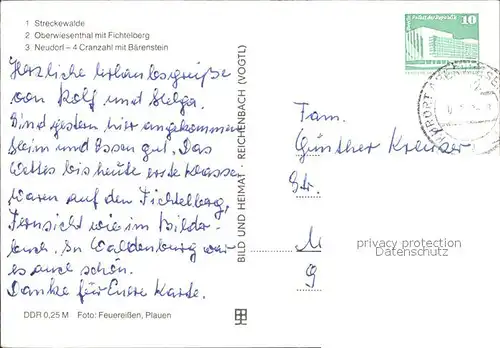 1 Streckewalde
2. Oberwiesenthal mit Fichtelberg
3 Neudorf – 4 Cranzahl mit Bärenstein
Herzliche Urlaubsgrüße
von Rolf und Helga.
Sind gestern hier angekommen
Heim und Essen gut. Das
Wetter bis heute erste Klasse
Waren auf den Fichtelberg,
Fernsicht wie im Bilder-
buch. In Waldenburg war
es auch schön.
Danke für Eure Karte.
DDR 0,25 M Foto: Feuereißen, Plauen
BILD UND HEIMAT · REICHENBACH (VOGTL)
10
Fam.
Günther
Str.
M
9
privacy protection
Datenschutz